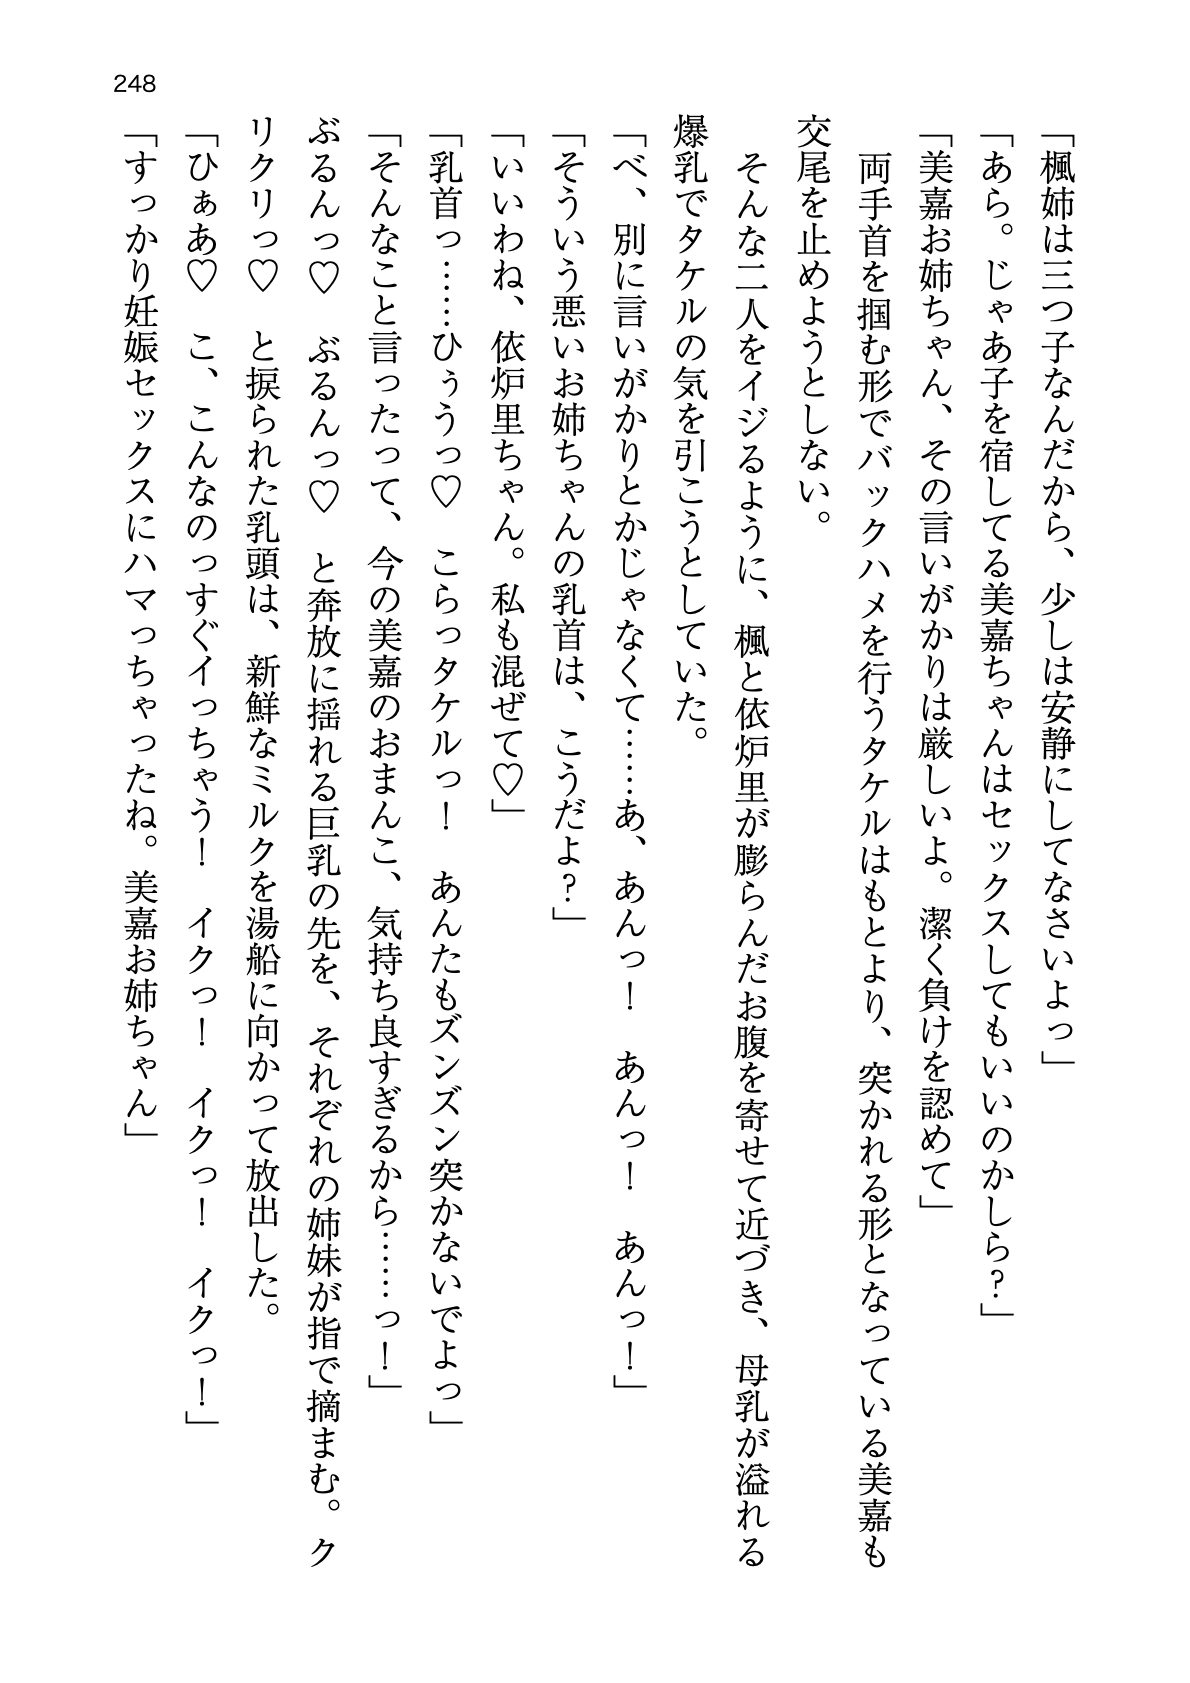 248
「楓姉は三つ子なんだから、少しは安静にしてなさいよっ」
「あら。じゃあ子を宿してる美嘉ちゃんはセックスしてもいいのかしら?」
「美嘉お姉ちゃん、その言いがかりは厳しいよ。潔く負けを認めて」
　両手首を掴む形でバックハメを行うタケルはもとより、突かれる形となっている美嘉も
交尾を止めようとしない。
　そんな二人をイジるように、楓と依炉里が膨らんだお腹を寄せて近づき、母乳が溢れる
爆乳でタケルの気を引こうとしていた。
「べ、別に言いがかりとかじゃなくて……あ、あんっ!　あんっ!　あんっ!」
「そういう悪いお姉ちゃんの乳首は、こうだよ?」
「いいわね、依炉里ちゃん。私も混ぜて♡」
「乳首っ……ひぅうっ♡　こらっタケルっ!　あんたもズンズン突かないでよっ」
「そんなこと言ったって、今の美嘉のおまんこ、気持ち良すぎるから……っ!」
ぶるんっ♡　ぶるんっ♡　と奔放に揺れる巨乳の先を、それぞれの姉妹が指で摘まむ。ク
リクリっ♡　と捩られた乳頭は、新鮮なミルクを湯船に向かって放出した。
「ひぁあ♡　こ、こんなのっすぐイっちゃう!　イクっ!　イクっ!　イクっ!」
「すっかり妊娠セックスにハマっちゃったね。美嘉お姉ちゃん」